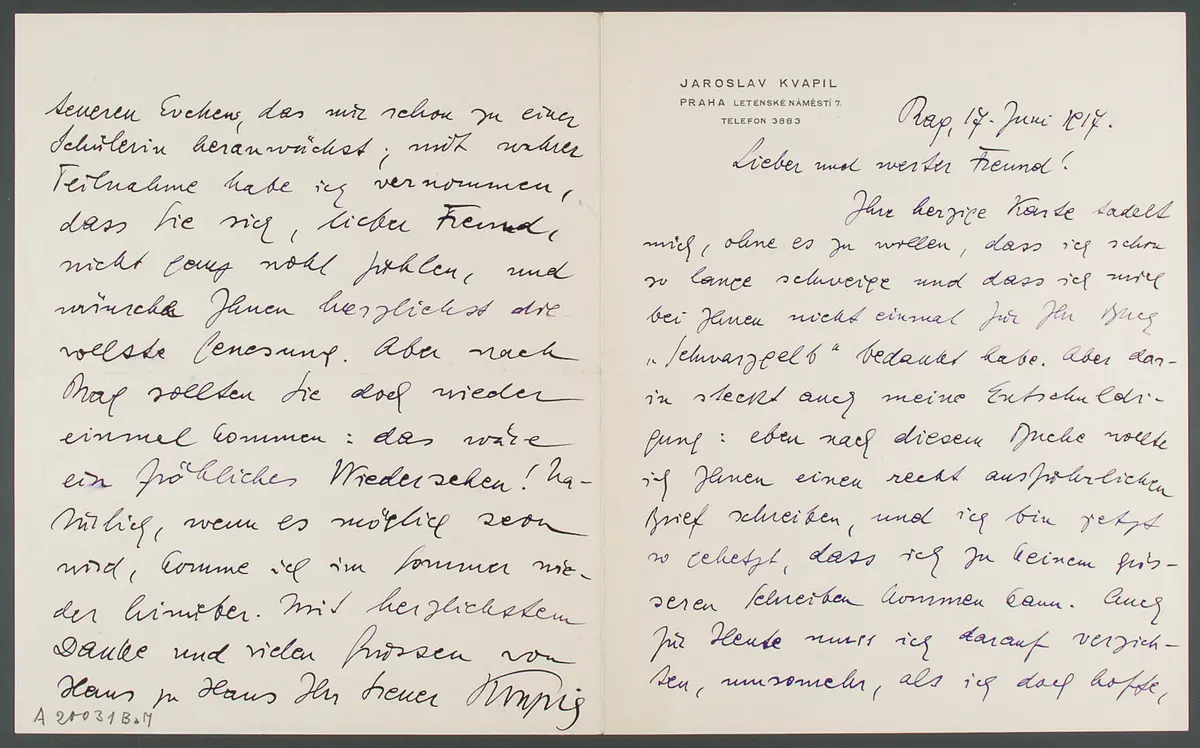 JAROSLAV KVAPIL
PRAHA LETENSKÉ NÁMĚSTÍ 7.
TELEFON 3883
Prag, 17. Juni 1917.
Lieber und werter Freund!
Ihre herzige Karte tadelt
mich, ohne es zu wollen, dass ich schon
so lange schweige und dass ich mich
bei Ihnen nicht einmal für Ihr Buch
„Schwarzgelb“ bedankt habe. Aber dar-
in steckt auch meine Entschuldi-
gung: eben nach diesem Buche wollte
ich Ihnen einen recht ausführlichen
Brief schreiben, und ich bin jetzt
so gehetzt, dass ich zu keinem grös-
seren Schreiben kommen kann. Auch
für Heute muss ich darauf verzich-
ten, umsomehr, als ich doch hoffe,
teueren Evchen, das mir schon zu einer
Schülerin heranwächst; mit wahrer
Teilnahme habe ich vernommen,
dass Sie sich, lieber Freund,
nicht ganz wohl fühlen, und
wünsche Ihnen herzlichst die
vollste Genesung. Aber nach
Prag sollten Sie doch wieder
einmal kommen: das wäre
ein fröhliches Wiedersehen! Na-
türlich, wenn es möglich seon
wird, komme ich im Sommer wie-
der hinüber. Mit herzlichstem
Danke und vielen Grüssen von
Haus zu Haus Ihr treuer Kvapil
A 20031 BaM